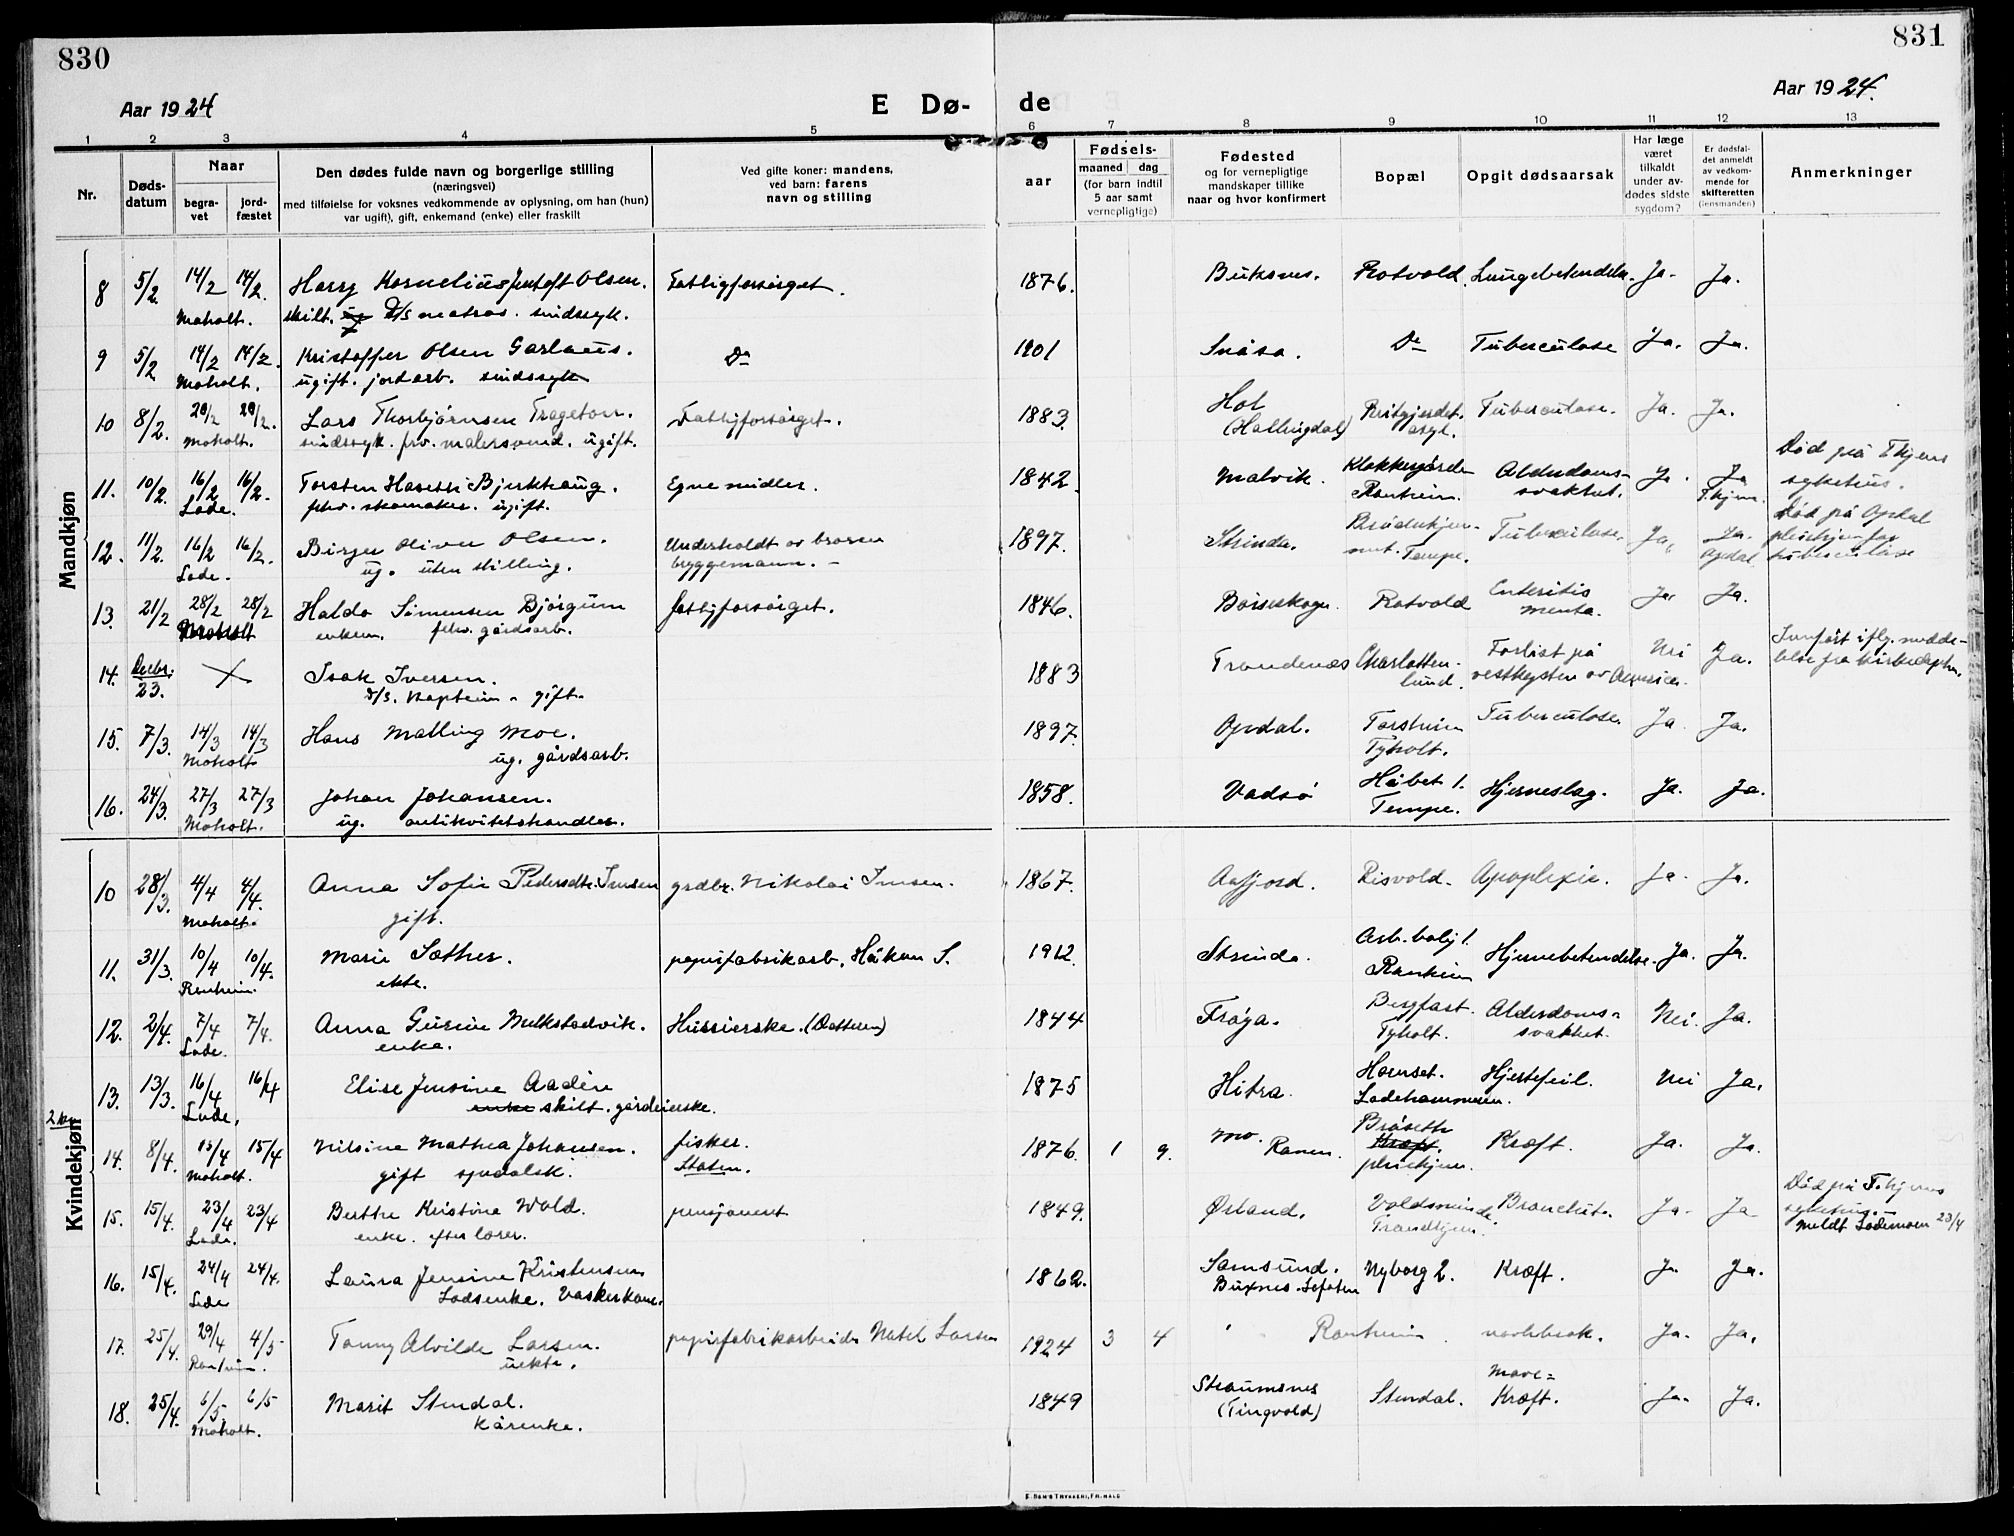 830
831
Aar 1924
E Dø- de
Aar 1924.
1 2 3 4 5 6 7 8 9 10 11 12 13
Nr.
Døds-
datum
Naar
begra-
vet
jord-
fæstet
Den dødes fulde navn og borgerlige stilling
(næringsvei)
med tilføielse for voksnes vedkommende av oplysning, om han (hun)
var ugift), gift, enkemand (enke) eller fraskilt
Ved gifte koner: mandens,
ved barn: farens
navn og stilling
aar
Fødsels-
maaned dag
(for barn indtil
5 aar samt
vernepligtige)
Fødested
og for vernepligtige
mandskaper tillike
naar og hvor konfirmert
Bopæl
Opgit dødsaarsak
Har læge
været
tilkaldt
under av-
dødes sidste
sygdom?
Er dødsfal-
det anmeldt
av vedkom-
mende for
skifteretten
(lensmanden)
Anmerkninger
Mandkjøn
8 5/2 14/2 14/2. Harry Kornelius Olsen. Fattigforsørget. 1876. Buksnes. Rotvold. Lungebetendelse Ja. Ja.
Moholt. skilt. D/S matros. sindssyk.
9 5/2 14/2 14/2. Kristoffer Olsen Do 1901 Snåsa. Do Tuberculose Ja. Ja.
Moholt. ugift. jordarb. sindssyk
10 8/2. 20/2 20/2. Lars Thorbjørnsen Fragetorn. Fattigforsørget. 1883. Hol Tuberculose. Ja. Ja.
Moholt. sindssyk. frv. malersvend. ugift. (Hallingdal) asyl.
11. 10/2. 16/2 16/2. Torsten Bjerkhaug. Egne midler. 1842. Malvik. Alderdoms- Ja. Ja Død på Thjems
Lade. frv. skomaker. ugift. Ranheim. svakhet. T.hjem. sykehus.
12. 11/2. 16/2 16/2. Birger Oliver Olsen. Underholdt av broren 1897. Strinda. Tuberculose. Ja. Ja. Død på Opdal
Lade. ug. uten stilling. bryggemann. Tempe. Opdal pleiehjem for
tuberculose
13. 21/2 28/2 28/2 Haldo Simensen Bjørgum fattigforsørget. 1846. Børseskogn. Rotvold Enteritis Ja. Ja.
Moholt enkem. frv. gårdsarb.
14. Decbr. Isak Iversen. 1883 Trondenes Charlotten- Forlist på Nei Ja. Innført iflg. medde-
23. D/S. kaptein - gift. lund. vestkysten av America. lelse fra kirkedeptm.
15. 7/3. 14/3 14/3 Hans Malling Moe. 1897. Opdal. Torsheim Tuberculose. Ja. Ja.
Moholt ug. gårdsarb. Tyholt.
16. 24/3. 27/3 27/3 Johan Johansen. 1858. Vadsø Håbet 1. Hjerneslag. Ja. Ja.
Moholt. ug. antikvitetshandler. Tempe.
Kvindekjøn
10 28/3. 4/4 4/4. Anna Sofie Pedersdtr. Imsen grdbr. Nikolai Imsen. 1867. Aafjord. Risvold. Apoplexie. Ja. Ja.
Moholt. gift.
11. 31/3. 10/4 10/4. Marie Sæther. papirfabrikarb. Håkon S. 1912. Strinda. Arb.bolig 1. Hjernebetendelse. Ja. Ja.
Ranheim. ekte. Ranheim
12. 2/4. 7/4 7/4. Anna Gurine Melkstadvik. Husvierske. (Datteren) 1844 Frøya. Bergfast. Alderdoms- Nei. Ja.
Lade. enke. Tyholt. svakhet.
13. 13/3. 16/4 16/4 Elise Jensine Aadin 1875 Hitra. Hornset. Hjertefeil. Nei Ja.
Lade. enke skilt. gårdeierske. Ladehammeren.
14. 8/4. 15/4 15/4 Nilsine Mathea Johansen. fisker. 1876. 1 9. Mo. Ranen. Brøseth Kræft. Ja. Ja.
Moholt. gift spedalsk. Staten. Kræft. pleiehjem.
15. 15/4. 23/4 23/4 Berthe Kristine Wold. pensjonert 1849. Ørland. Voldsminde. Bronchit. Ja. Ja Død på T.hjems
Lade. enke. efter lærer. Trondhjem. sykehus.
Meldt Lademoen 23/4
16. 15/4. 24/4 24/4. Laura Jensine Kristensen 1862. Samsund. Nyborg 2. Kræft. Ja. Ja.
Lade Losenke. Vaskerkone. Buxnes. Lofoten
17. 25/4. 29/4 4/5 Fanny Alvilde Larsen. papirfabrikarbeider Larsen 1924 3 4 Ranheim. navlebrok. Ja. Ja.
Ranheim. uekte.
18. 25/4. 6/5. 6/5 Marit Stendal. 1849 Straumsnes Stendal. Mave= Ja. Ja.
Moholt. kårenke. (Tingvold) Kræft.
E. SEM'S TRYKKERI, FR.HALD